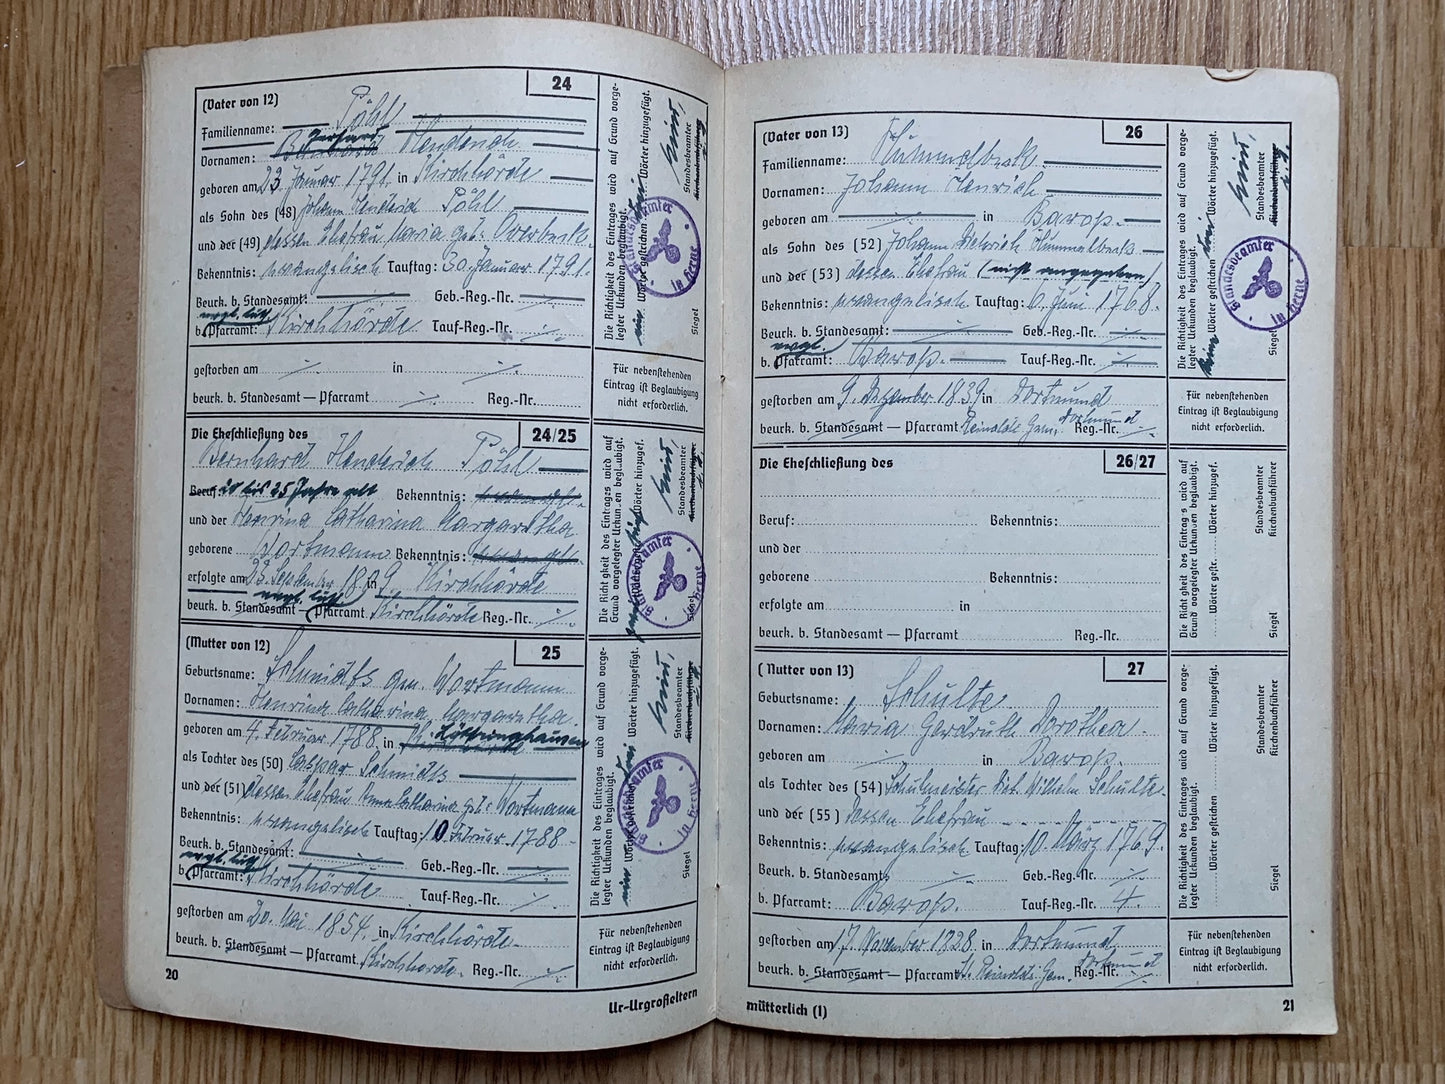 24
(Vater von 12)
Familienname: Pöhl
Vornamen: Henderich
geboren am 23. Januar 1791 in Kirchhörde
als Sohn des (48) Johann Henderich Pöhl
und der (49) dessen Ehefrau Maria geb. Overbeck
Bekenntnis: evangelisch Tauftag: 30. Januar 1791.
Beurk. b. Standesamt: Geb.-Reg.-Nr.
b. Pfarramt: Kirchhörde Tauf-Reg.-Nr.
gestorben am in
beurk. b. Standesamt — Pfarramt Reg.-Nr.
Die Richtigkeit des Eintrages wird auf Grund vorge-
legter Urkunden beglaubigt.
ein Wörter gestrichen drei Wörter hinzugefügt.
Standesbeamter
Kirchenbuchführer
Siegel
Standesbeamter in Herne
Für nebenstehenden
Eintrag ist Beglaubigung
nicht erforderlich.
24/25
Die Eheschließung des
Bernhard Henderich Pöhl
Beruf: 20 bis 25 Jahre alt Bekenntnis:
und der Henrina Catharina Margaretha
geborene Wortmann Bekenntnis:
erfolgte am 23. September 1809 in Kirchhörde
beurk. b. Standesamt — Pfarramt Kirchhörde Reg.-Nr.
Die Richtigkeit des Eintrages wird auf
Grund vorgelegter Urkunden beglaubigt.
Wörter hinzugef.
Standesbeamter
Kirchenbuchführer
Siegel
Standesbeamter in Herne
25
(Mutter von 12)
Geburtsname: Schmidts gen. Wortmann
Vornamen: Henrina Catharina Margaretha.
geboren am 4. Februar 1788 in Kl. Löttringhausen
als Tochter des (50) Caspar Schmidts
und der (51) dessen Ehefrau Anna Catharina geb. Wortmann
Bekenntnis: evangelisch Tauftag: 10. Februar 1788.
Beurk. b. Standesamt: Geb.-Reg.-Nr.
b. Pfarramt: Kirchhörde Tauf-Reg.-Nr.
gestorben am 20. Mai 1854. in Kirchhörde
beurk. b. Standesamt — Pfarramt Kirchhörde. Reg.-Nr.
Die Richtigkeit des Eintrages wird auf Grund vorge-
legter Urkunden beglaubigt.
ein Wörter gestrichen drei Wörter hinzugefügt.
Standesbeamter
Kirchenbuchführer
Siegel
Standesbeamter in Herne
Für nebenstehenden
Eintrag ist Beglaubigung
nicht erforderlich.
20
Ur-Urgroßeltern
26
(Vater von 13)
Familienname: Himmelbrock
Vornamen: Johann Henrich
geboren am in Barop.
als Sohn des (52) Johann Dietrich Himmelbrock
und der (53) dessen Ehefrau (nicht angegeben)
Bekenntnis: evangelisch Tauftag: 6. Juni 1768.
Beurk. b. Standesamt: Geb.-Reg.-Nr.
evgl.
b. Pfarramt: Barop. Tauf-Reg.-Nr.
gestorben am 9. Dezember 1839 in Dortmund
beurk. b. Standesamt — Pfarramt Reinoldi Gem. Dortmund Reg.-Nr.
Die Richtigkeit des Eintrages wird auf Grund vorge-
legter Urkunden beglaubigt.
kein Wörter gestrichen drei Wörter hinzugefügt.
Standesbeamter
Kirchenbuchführer
Siegel
Standesbeamter in Herne
Für nebenstehenden
Eintrag ist Beglaubigung
nicht erforderlich.
26/27
Die Eheschließung des
Beruf: Bekenntnis:
und der
geborene Bekenntnis:
erfolgte am in
beurk. b. Standesamt — Pfarramt Reg.-Nr.
Die Richtigkeit des Eintrages wird auf
Grund vorgelegter Urkunden beglaubigt.
Wörter gestr. Wörter hinzugef.
Standesbeamter
Kirchenbuchführer
Siegel
27
(Mutter von 13)
Geburtsname: Schulte
Vornamen: Maria Gerdruth Dorothea.
geboren am in Barop.
als Tochter des (54) Schulmeister Wilhelm Schulte.
und der (55) dessen Ehefrau
Bekenntnis: evangelisch Tauftag: 10. März 1769.
Beurk. b. Standesamt: Geb.-Reg.-Nr.
b. Pfarramt: Barop. Tauf-Reg.-Nr. 4.
gestorben am 17. November 1828 in Dortmund
beurk. b. Standesamt — Pfarramt St. Reinoldi Gem. Dortmund Reg.-Nr.
Die Richtigkeit des Eintrages wird auf Grund vorge-
legter Urkunden beglaubigt.
Wörter gestrichen Wörter hinzugefügt.
Standesbeamter
Kirchenbuchführer
Siegel
Für nebenstehenden
Eintrag ist Beglaubigung
nicht erforderlich.
mütterlich (1)
21